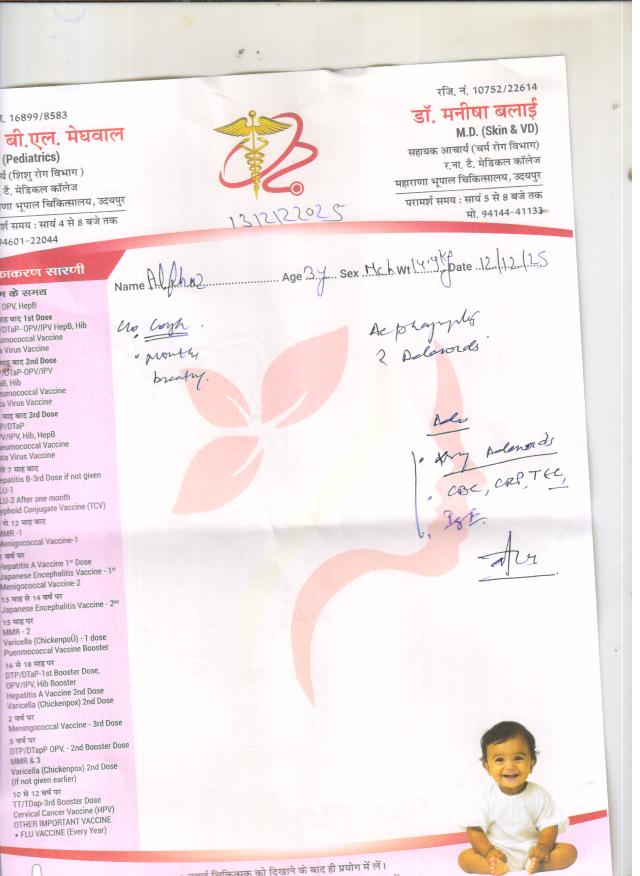 . 16899/8583
बी.एल. मेघवाल
(Pediatrics)
र्य (शिशु रोग विभाग )
. टै. मेडिकल कॉलेज
राणा भूपाल चिकित्सालय, उदयपुर
र्श समय : सायं 4 से 8 बजे तक
94601-22044
रजि. नं. 10752/22614
डॉ. मनीषा बलाई
M.D. (Skin & VD)
सहायक आचार्य (चर्म रोग विभाग)
र.ना. टै. मेडिकल कॉलेज
महाराणा भूपाल चिकित्सालय, उदयपुर
परामर्श समय : सायं 5 से 8 बजे तक
मो. 94144-41133
Name Age 3y Sex Mch Wt 14.4kg Date 12/12/25
c/o Cough
• mouth
breathy.
2 Adenoids
Adv
• Xray Adenoids
• CBC, CRP, TEC,
• IgE.
काकरण सारणी
म के समय
OPV, HepB
माह बाद 1st Dose
/DTaP- OPV/IPV HepB, Hib
eumococcal Vaccine
a Virus Vaccine
माह बाद 2nd Dose
/DTaP-OPV/IPV
B, Hib
eumococcal Vaccine
ta Virus Vaccine
माह बाद 3rd Dose
P/DTaP
V/IPV, Hib, HepB
neumococcal Vaccine
ta Virus Vaccine
से 7 माह बाद
epatitis B-3rd Dose if not given
LU-1
LU-2 After one month
yphoid Conjugate Vaccine (TCV)
से 12 माह बाद
MMR -1
Menigococcal Vaccine-1
वर्ष पर
Hepatitis A Vaccine 1st Dose
Japanese Encephalitis Vaccine - 1st
Menigococcal Vaccine-2
13 माह से 14 वर्ष पर
Japanese Encephalitis Vaccine - 2nd
15 माह पर
MMR - 2
Varicella (ChickenpoÜ) - 1 dose
Puenmococcal Vaccine Booster
16 से 18 माह पर
DTP/DTaP-1st Booster Dose,
OPV/IPV, Hib Booster
Hepatitis A Vaccine 2nd Dose
Varicella (Chickenpox) 2nd Dose
2 वर्ष पर
Meningococcal Vaccine - 3rd Dose
5 वर्ष पर
DTP/DTapP OPV, - 2nd Booster Dose
MMR & 3
Varicella (Chickenpox) 2nd Dose
(If not given earlier)
10 से 12 वर्ष पर
TT/TDap-3rd Booster Dose
Cervical Cancer Vaccine (HPV)
OTHER IMPORTANT VACCINE
• FLU VACCINE (Every Year)
चिकित्सक को दिखाने के बाद ही प्रयोग में लें।